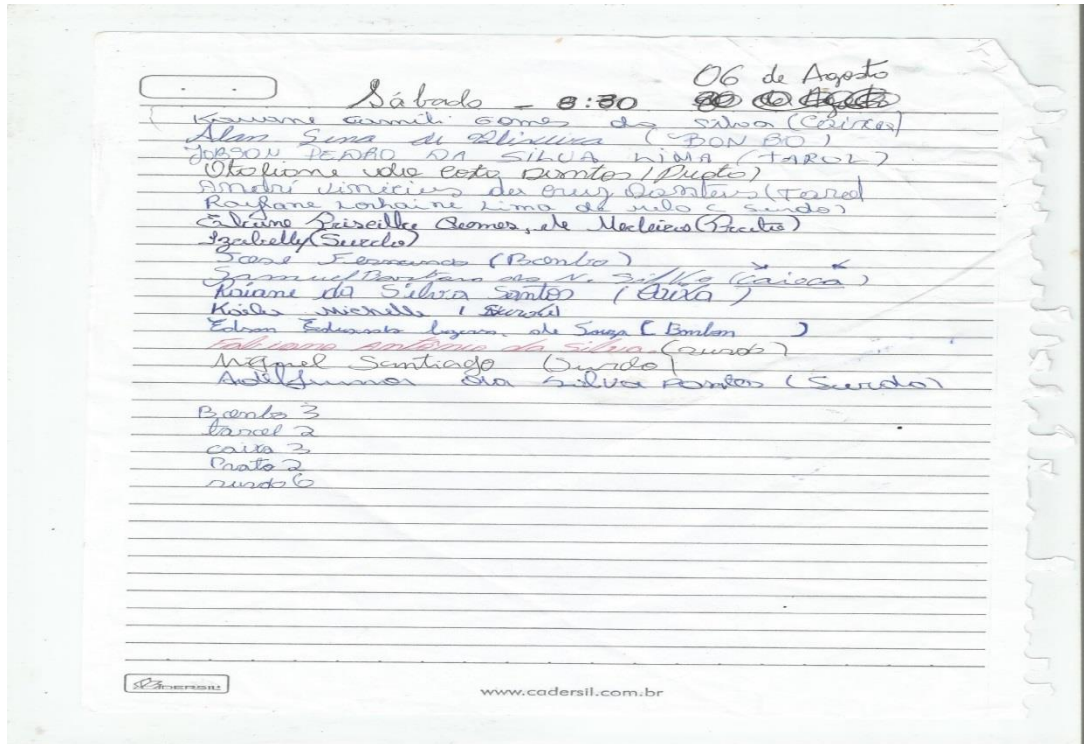 06 de Agosto
Sábado - 8:30
Kauane Camili Gomes da Silva (Caixa)
Alan Sena de Oliveira (BON BO)
JOBSON PEDRO DA SILVA LIMA (TAROL)
(Prato)
André Vinicius da Cruz (Tarol
Rayane Lorhaine Lima de melo (Surdo)
Priscilla Gomes, de Medeiros (Prato)
Izabelly (Surdo)
José Fernando (Bombo)
Samuel do N. Silva (Caioca)
Raiane da Silva Santos (Caixa)
Michelle (Surdo)
Edson Eduardo de Souza (Bombon)
Fabiano Antônio da Silva (surdo)
Miguel Santiago (Surdo)
da Silva Pontes (Surdo)
Bombo 3
tarol 2
caixa 3
Prato 2
surdo 6
www.cadersil.com.br